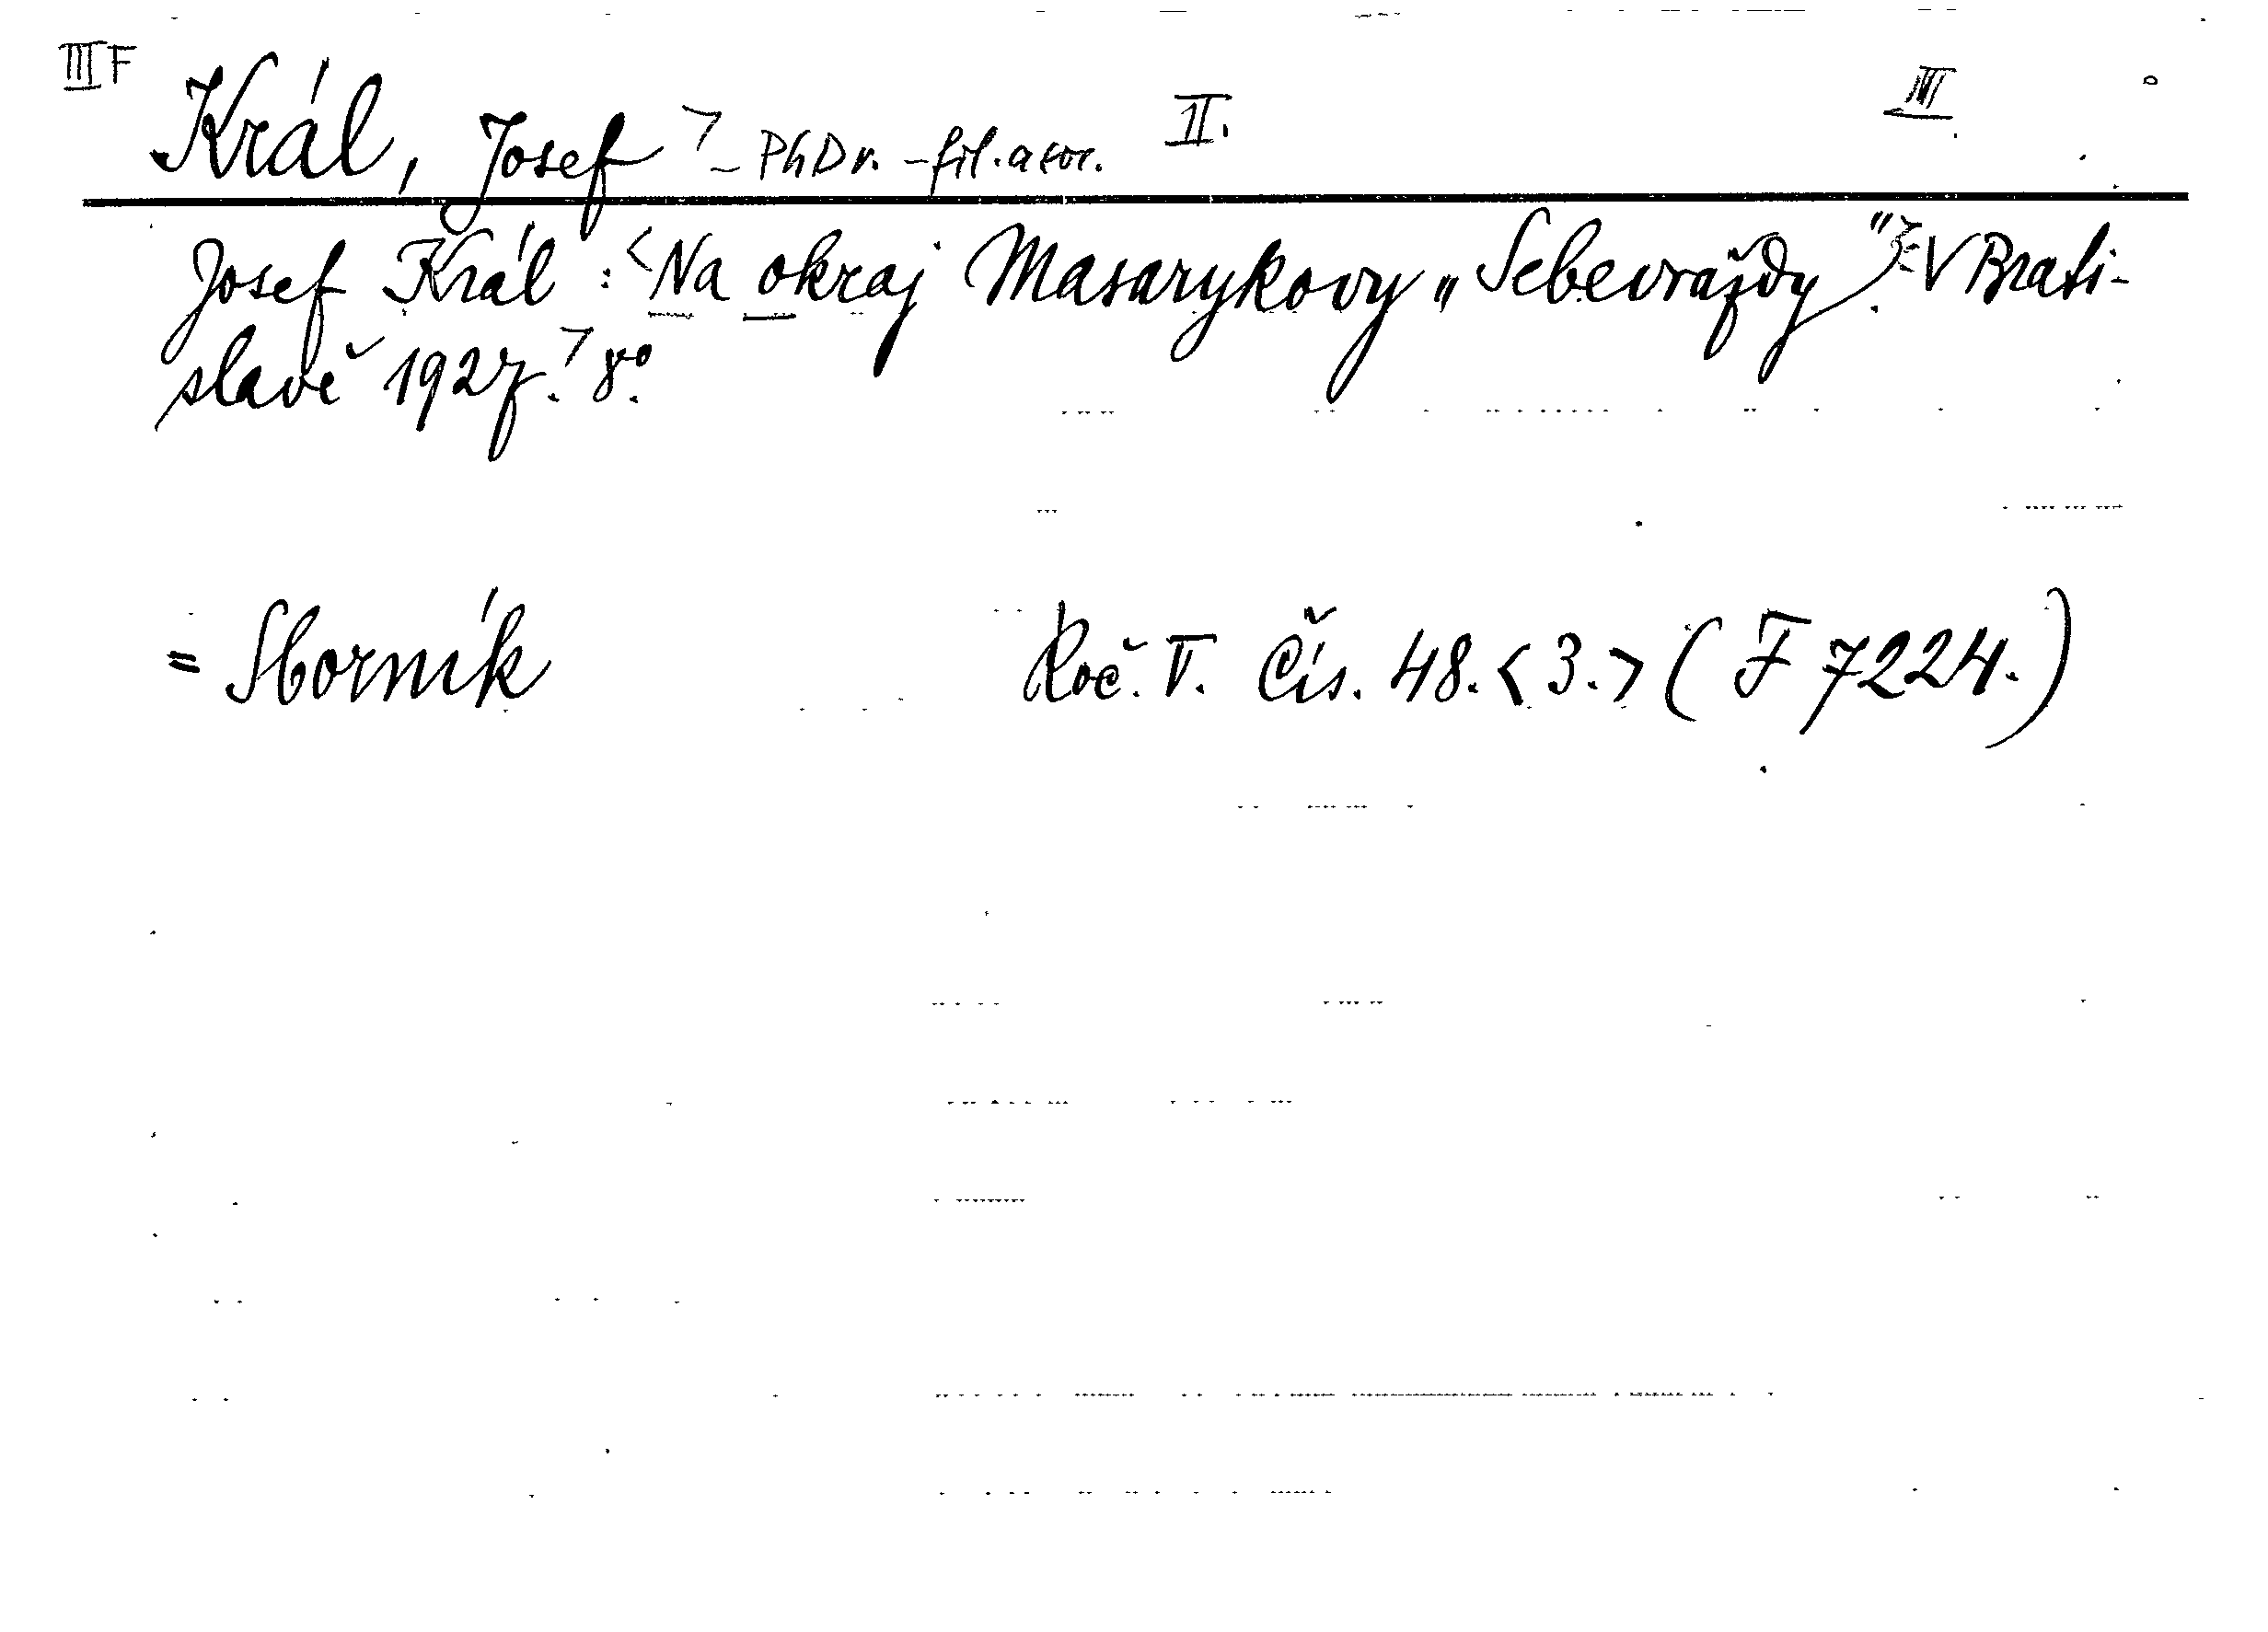 III F
Král, Josef > – PhDr. – fil. a soc. II. III
Josef Král : <Na okraj Masarykovy „Sebevraždy". V Brati-
slavě 1927.> 8º.
= Sborník Roč. V. Čís. 48. <3.> (F 7224.)